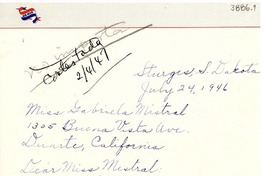 3886.1
Contestada
2/4/47
Sturgis, S. Dakota
July 24, 1946
Miss Gabriela Mistral
1305 Buena Vista Ave.
Duarte, California
Dear Miss Mistral: